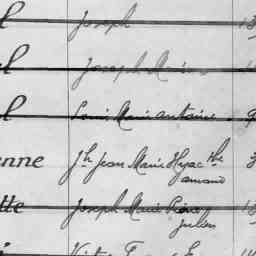 l Joseph 13
el Joseph Marie
l Louis Marie antoine 9
enne Jh Jean Marie Hyacthe 3
amand
tte Joseph Marie Pierre 13
Julien